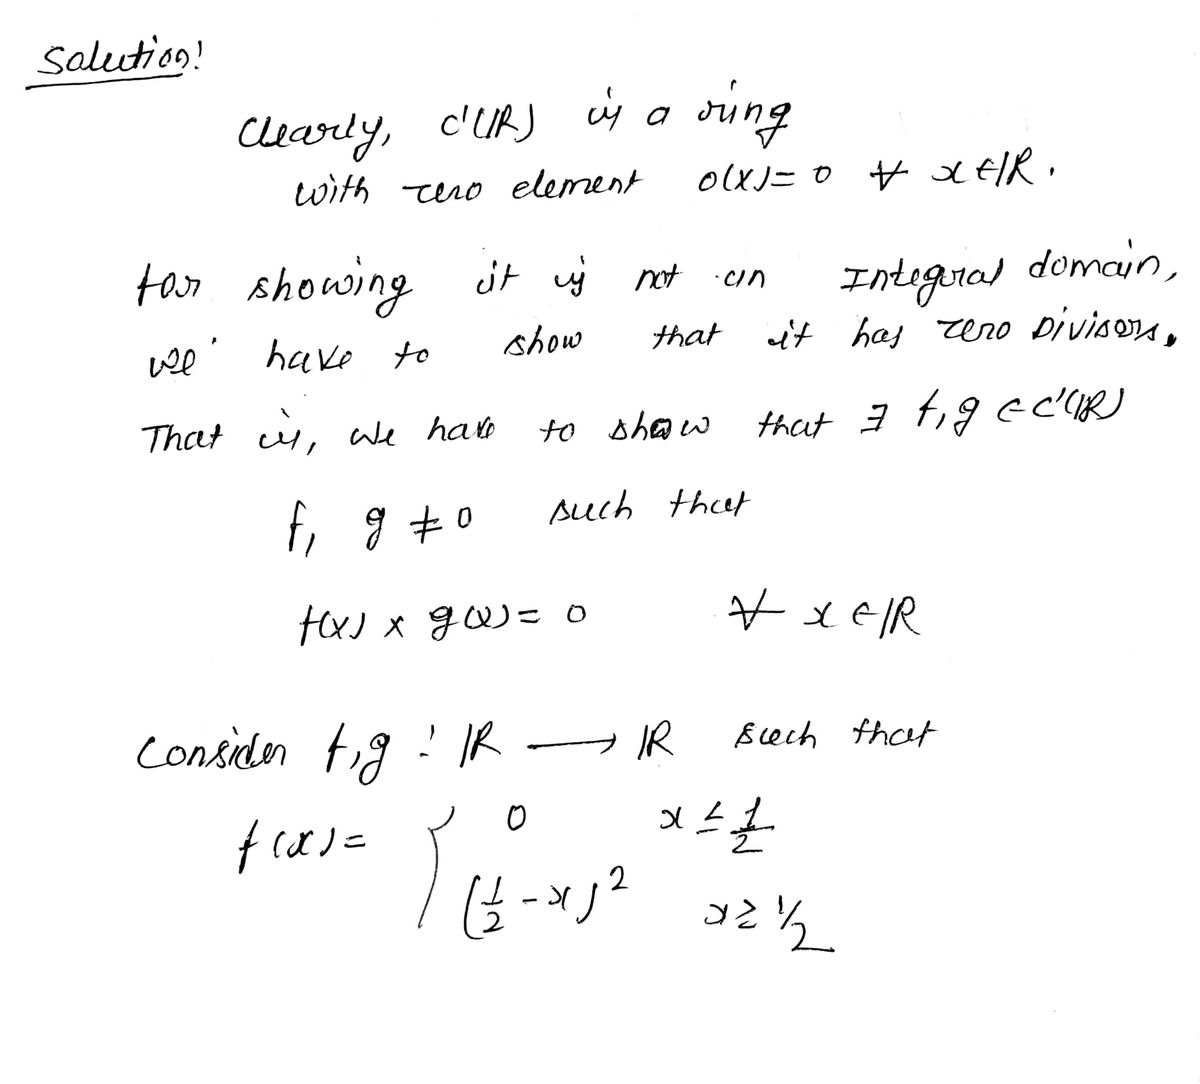 Solution:
Clearly, C'(IR) is a ring
with zero element 0(x)= 0 ∀ x∈IR.
for showing it is not an Integral domain,
we have to show that it has zero Divisors.
That is, we have to show that ∃ f,g ∈ C'(IR)
f, g ≠ 0 such that
f(x) x g(x) = 0 ∀ x ∈ IR
Consider f,g : IR ⟶ IR such that
f(x) = { 0 x ≤ 1/2
(1/2 - x)² x ≥ 1/2